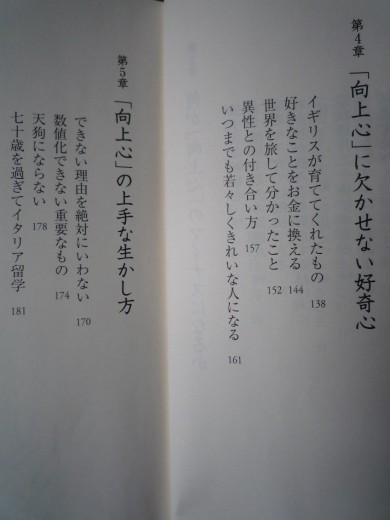 第4章 「向上心」に欠かせない好奇心
イギリスが育ててくれたもの 138
好きなことをお金に換える 144
世界を旅して分かったこと 152
異性との付き合い方 157
いつまでも若々しくきれいな人になる 161
第5章 「向上心」の上手な生かし方
できない理由を絶対にいわない 170
数値化できない重要なもの 174
天狗にならない 178
七十歳を過ぎてイタリア留学 181